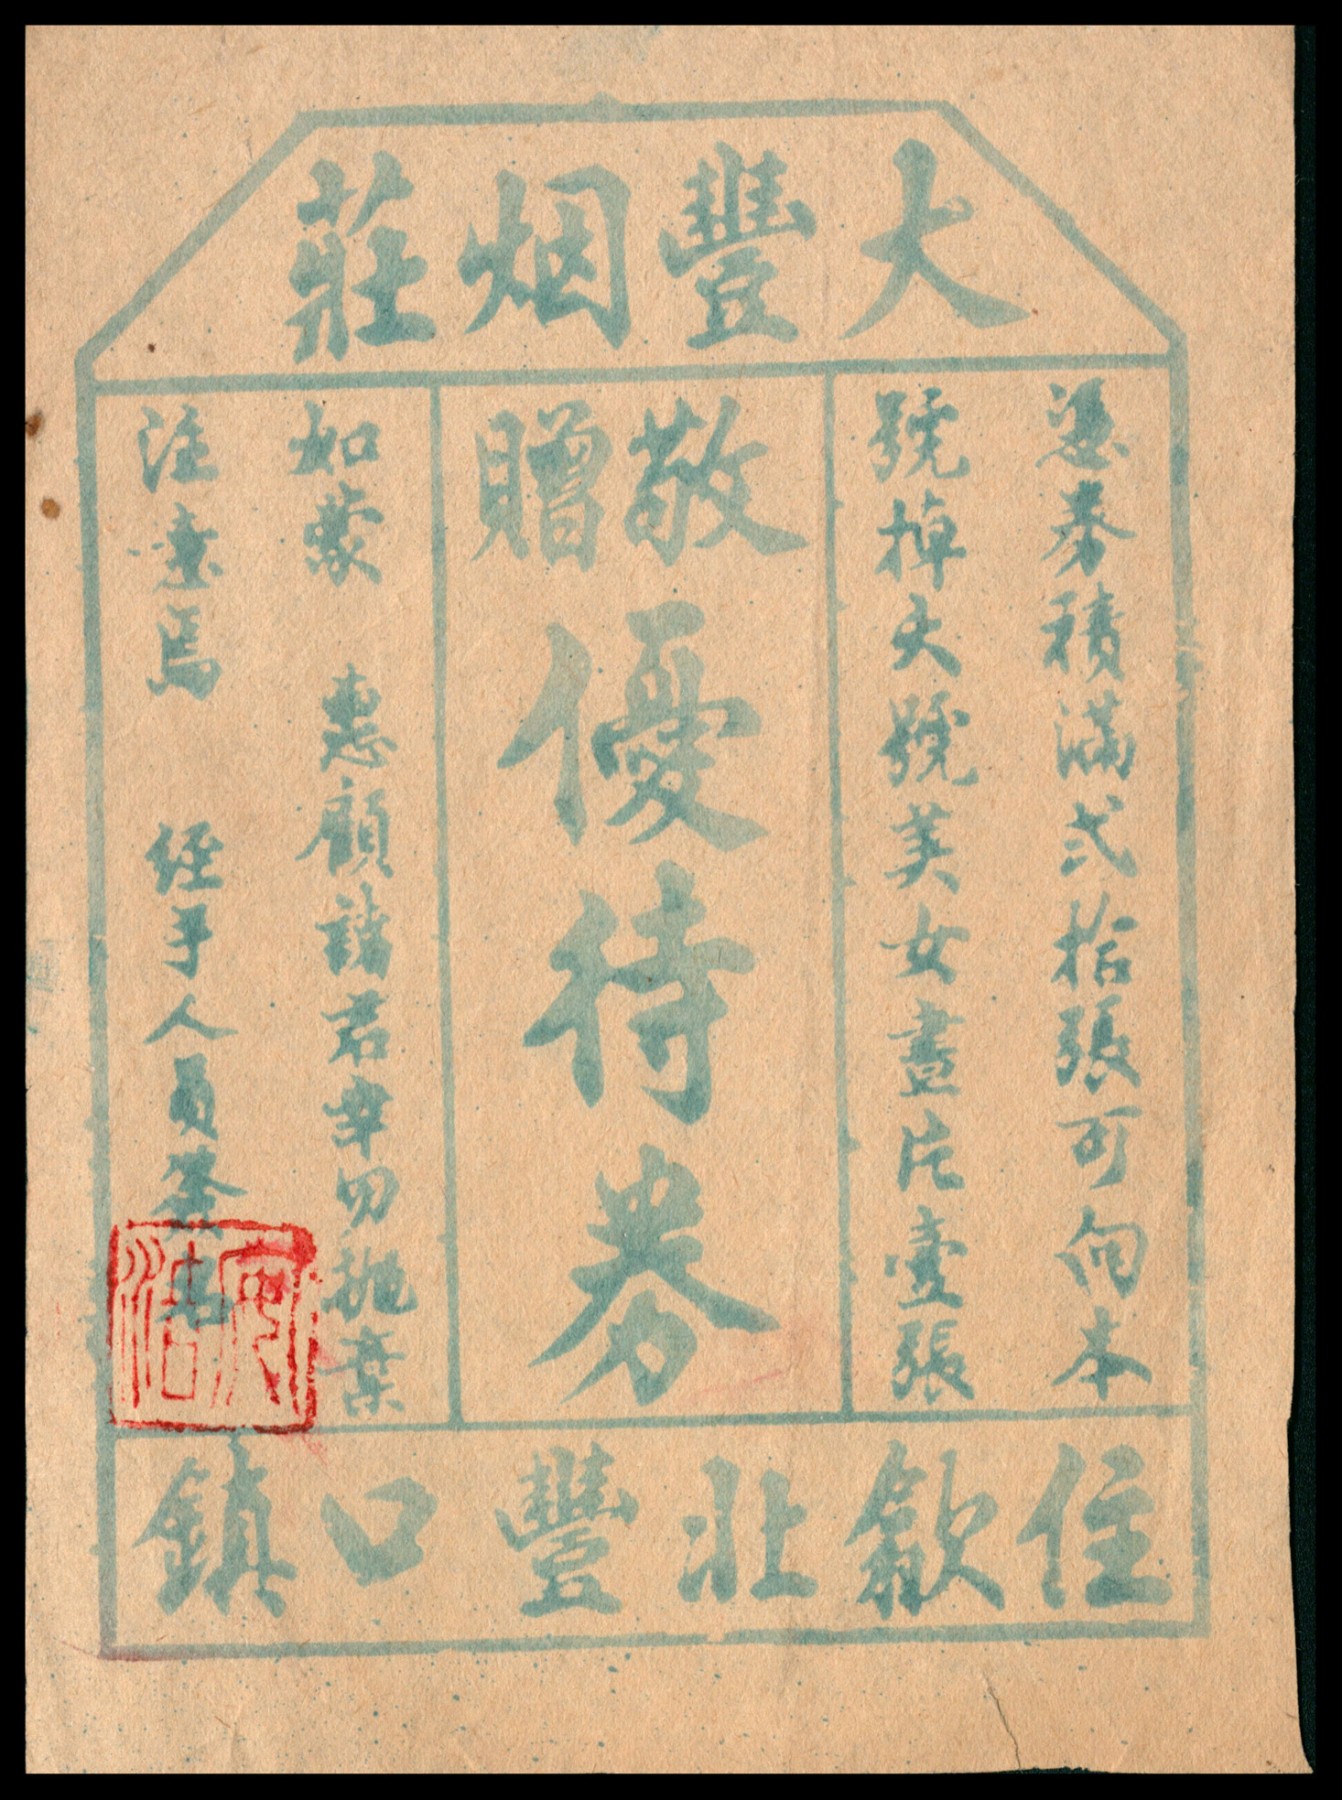 大豐烟莊
憑券積滿弍拾張可向本
號掉大號美女畫片壹張
敬贈
優待券
如蒙 惠顧諸君幸勿拋棄
注意焉 經手人員簽
住歙北豐口鎮